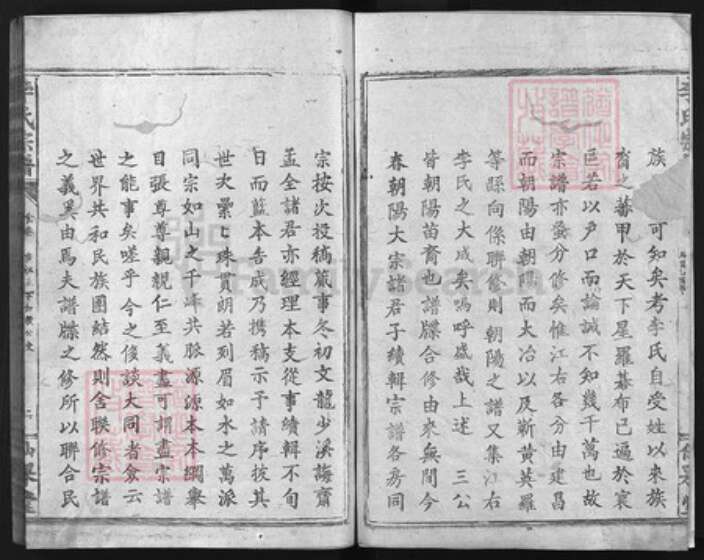 族　可知矣考李氏自受姓以來族
裔之蕃甲於天下星羅棊布已遍於寰
區若以户口而論誠不知幾千萬也故
宗譜亦彙分修矣惟江右各分由建昌
而朝陽由朝陽而大冶以及蘄黃英羅
等縣向係聯修則朝陽之譜又集江右
李氏之大成矣嗚呼盛哉上述　三公
皆朝陽苗裔也譜牒合修由來無間今
春朝陽大宗諸君子續輯宗譜各房同
宗按次投稿蕆事冬初文龍少溪海齋
孟全諸君亦經理本支從事續輯不旬
日而藍本告成乃携稿示予請序披其
世次纍纍珠貫朗若列眉如水之萬派
同宗如山之千峰共脈源源本本綱舉
目張尊尊親親仁至義盡可謂盡宗譜
之能事矣嗟乎今之侈談大同者僉云
世界共和民族團結然則舍聯修宗譜
之義奚由焉夫譜牒之修所以聯合民
李氏宗譜
FamilySearch